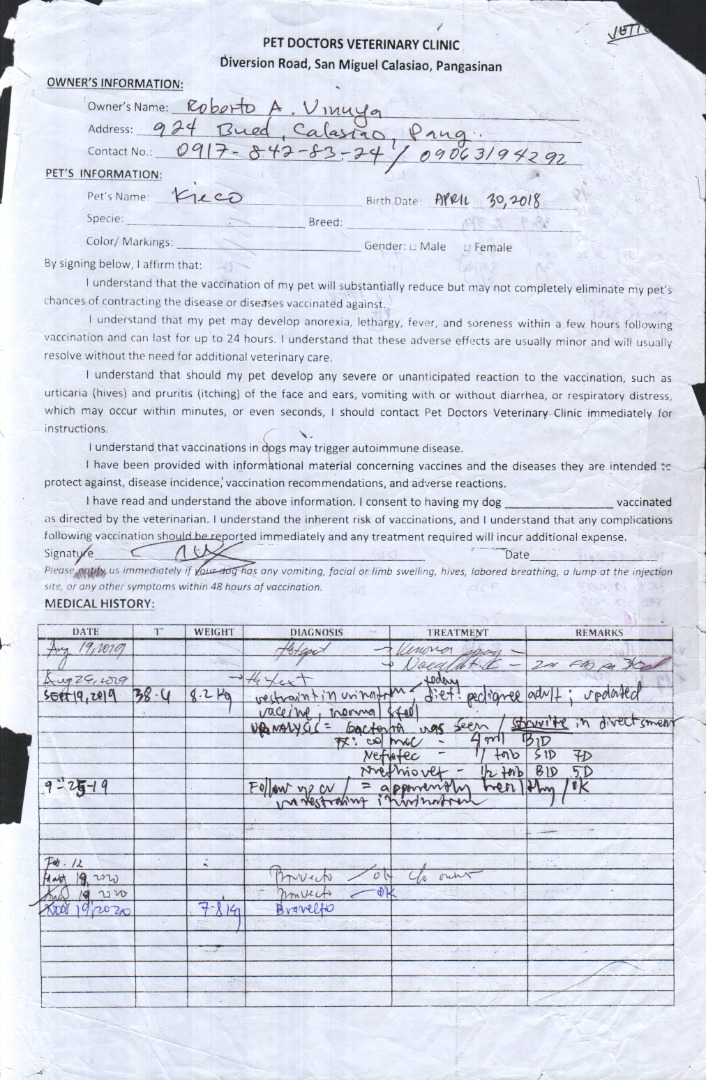 PET DOCTORS VETERINARY CLINIC
Diversion Road, San Miguel Calasiao, Pangasinan
OWNER'S INFORMATION:
Owner's Name: Roberto A. Vinuya
Address: 924 Bued, Calasiao, Pang.
Contact No.: 0917-842-83-24 / 09063194292
PET'S INFORMATION:
Pet's Name: Kieco Birth Date: APRIL 30, 2018
Specie: Breed:
Color/ Markings: Gender: □ Male □ Female
By signing below, I affirm that:
I understand that the vaccination of my pet will substantially reduce but may not completely eliminate my pet's
chances of contracting the disease or diseases vaccinated against.
I understand that my pet may develop anorexia, lethargy, fever, and soreness within a few hours following
vaccination and can last for up to 24 hours. I understand that these adverse effects are usually minor and will usually
resolve without the need for additional veterinary care.
I understand that should my pet develop any severe or unanticipated reaction to the vaccination, such as
urticaria (hives) and pruritis (itching) of the face and ears, vomiting with or without diarrhea, or respiratory distress,
which may occur within minutes, or even seconds, I should contact Pet Doctors Veterinary Clinic immediately for
instructions.
I understand that vaccinations in dogs may trigger autoimmune disease.
I have been provided with informational material concerning vaccines and the diseases they are intended to
protect against, disease incidence, vaccination recommendations, and adverse reactions.
I have read and understand the above information. I consent to having my dog vaccinated
as directed by the veterinarian. I understand the inherent risk of vaccinations, and I understand that any complications
following vaccination should be reported immediately and any treatment required will incur additional expense.
Signature Date
Please notify us immediately if your dog has any vomiting, facial or limb swelling, hives, labored breathing, a lump at the injection
site, or any other symptoms within 48 hours of vaccination.
MEDICAL HISTORY:
DATE T° WEIGHT DIAGNOSIS TREATMENT REMARKS
Aug 19, 2019 Hotspot
Aug 29, 2019
today
SEPT 19, 2019 38.4 8.2 kg diet: pedigree adult; updated
vaccine, normal stool
URINALYSIS = bacteria was seen / struvite in direct smear
4 ml BID
Nefrotec - 1 tab SID 7D
1/2 tab BID 5D
9-25-19 Follow up cu / = apparently healthy / OK
Feb. 12
19, 2020 Bravecto / ok c/o owner
19, 2020 Bravecto OK
Nov 19, 2020 7.8 kg Bravecto